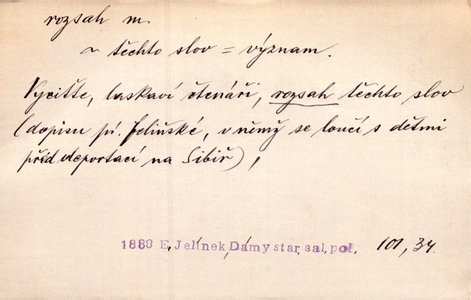 rozsah m.
~ těchto slov = význam.
Vyciťte, laskaví čtenáři, rozsah těchto slov
(dopisu pí. Felińské, v němž se loučí s dětmi
před deportací na Sibiř),
1880 E. Jelínek Dámy star. sal. pol. 101, 34